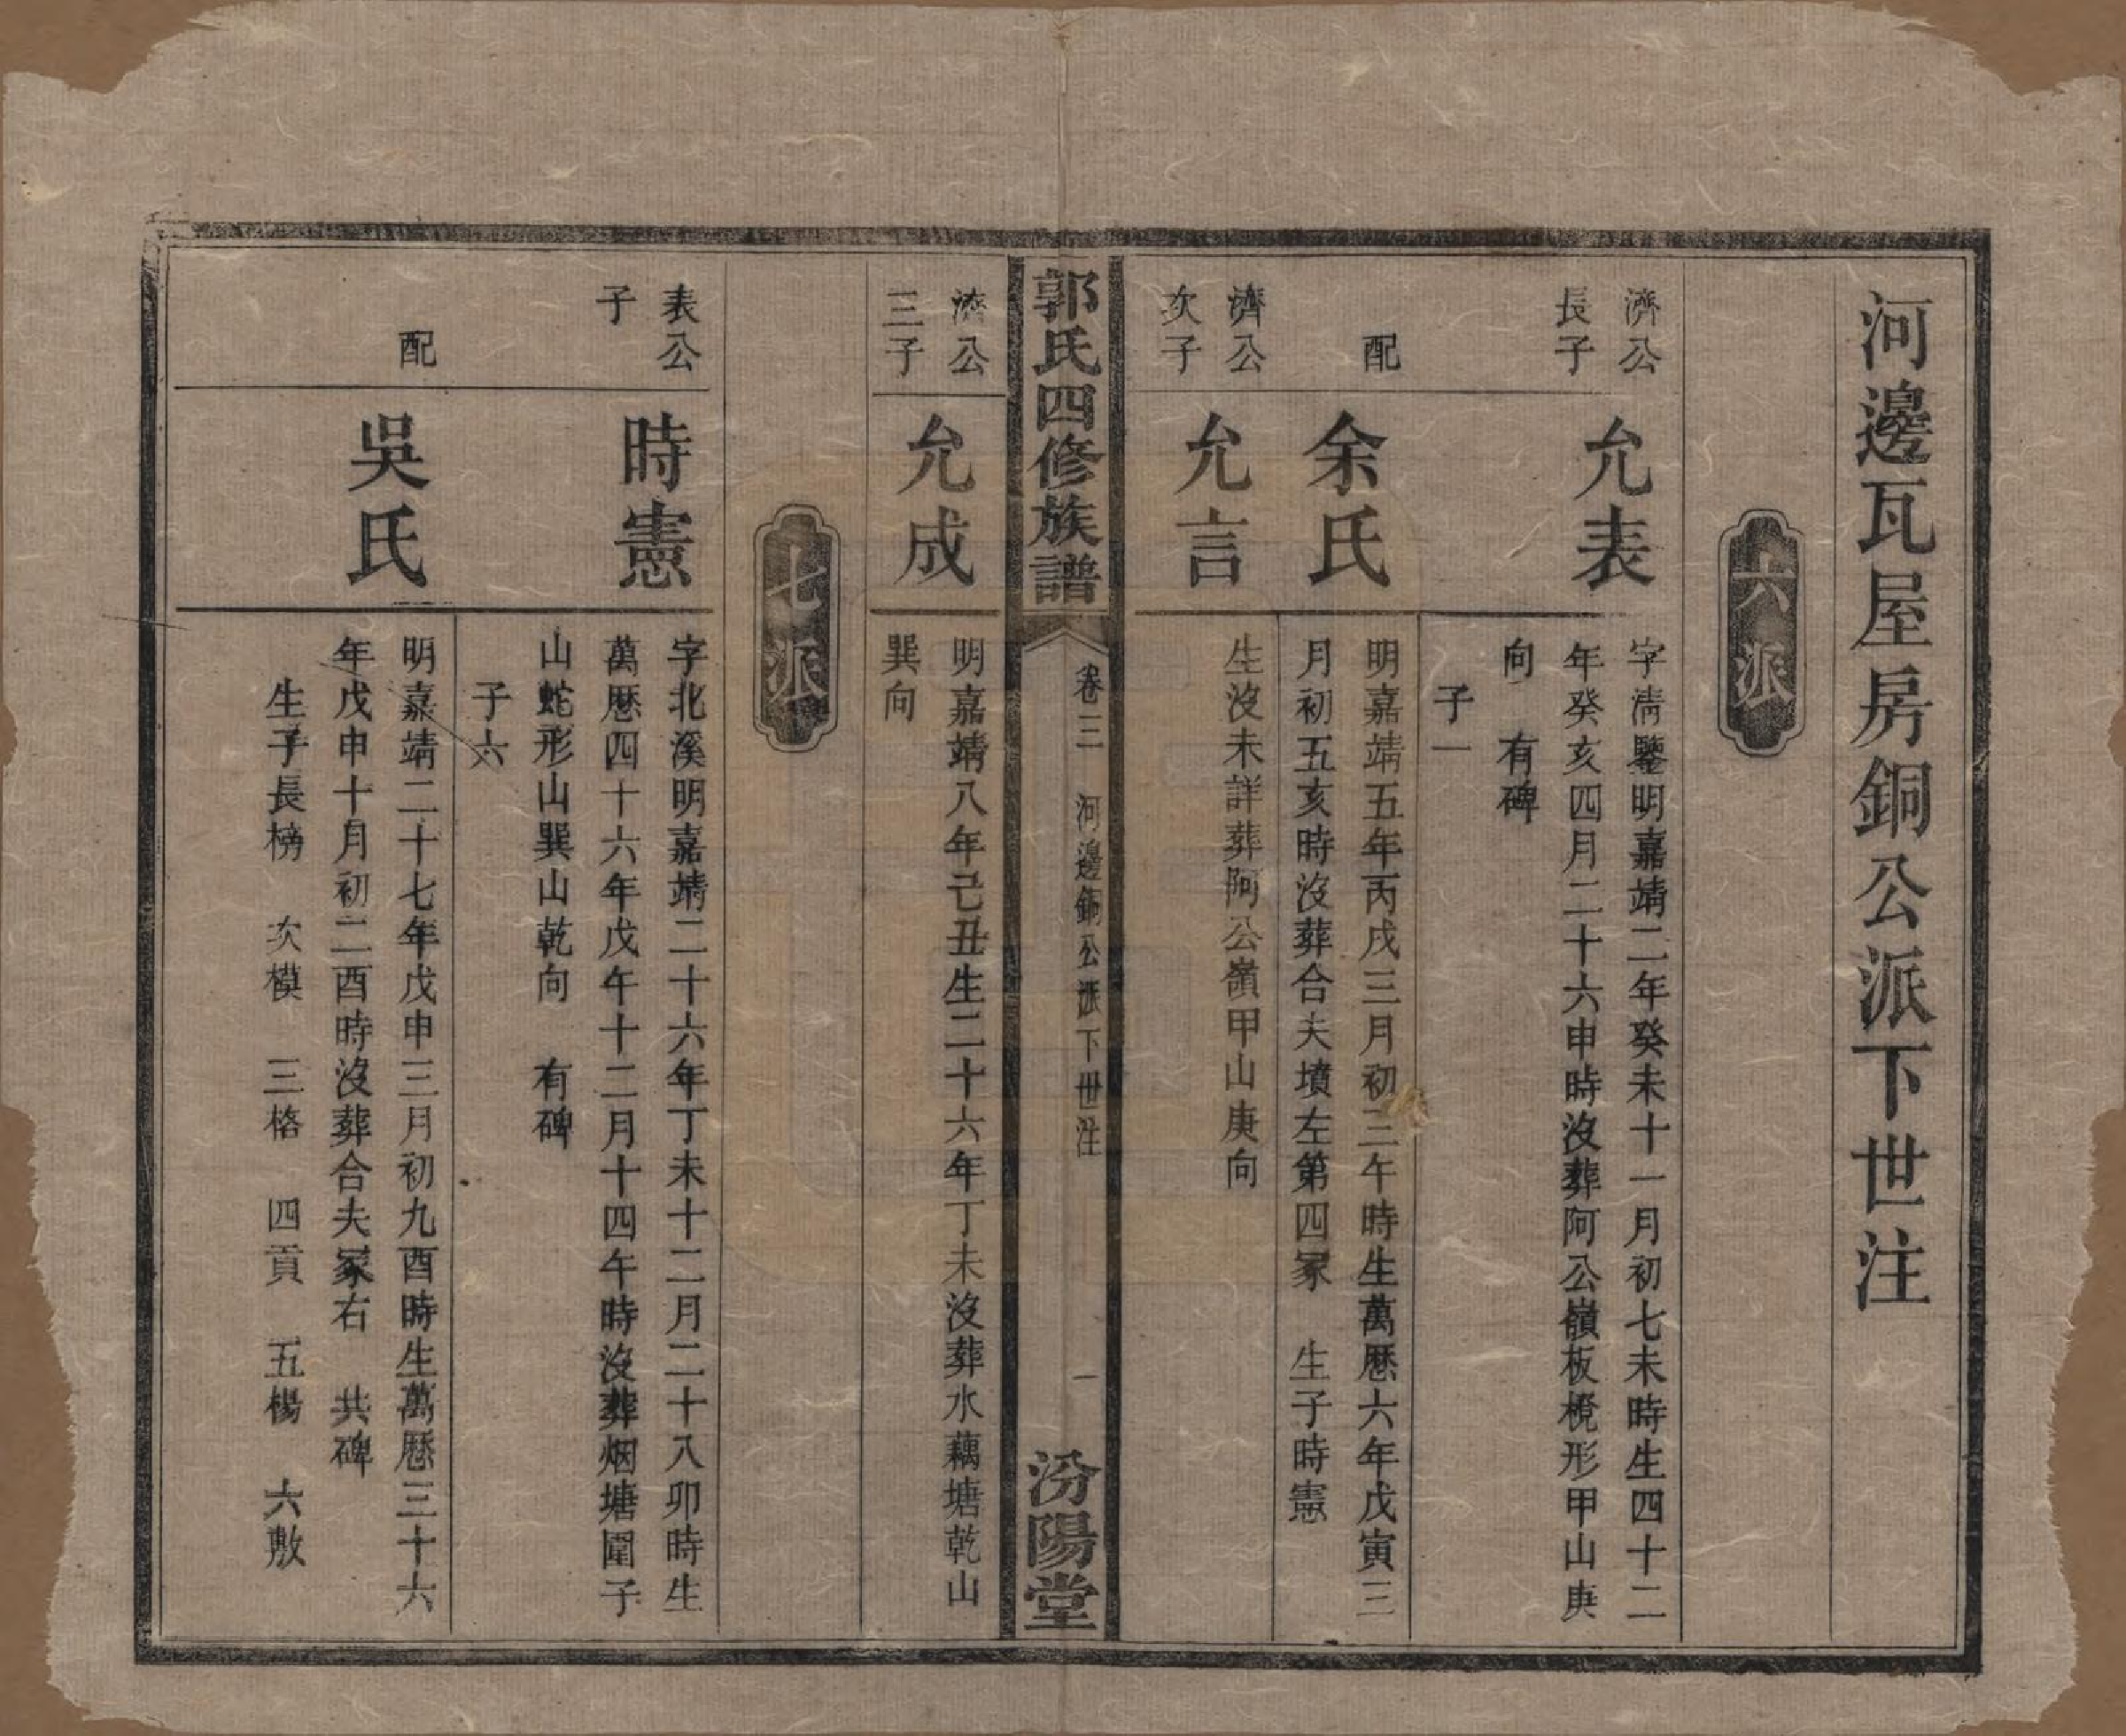 河邊瓦屋房銅公派下世注
六派
濟公
長子
允表
字淸鑒明嘉靖二年癸未十一月初七未時生四十二
年癸亥四月二十六申時沒葬阿公嶺板櫈形甲山庚
向　有碑
子一
配
余氏
明嘉靖五年丙戌三月初三午時生萬曆六年戊寅三
月初五亥時沒葬合夫墳左第四冢　生子時憲
濟公
次子
允言
生沒未詳葬阿公嶺甲山庚向
郭氏四修族譜
卷三　河邊銅公派下世注
一
汾陽堂
濟公
三子
允成
明嘉靖八年己丑生二十六年丁未沒葬水藕塘乾山
巽向
七派
表公
子
時憲
字北溪明嘉靖二十六年丁未十二月二十八卯時生
萬曆四十六年戊午十二月十四午時沒葬烟塘圍子
山蛇形山巽山乾向　有碑
子六
配
吳氏
明嘉靖二十七年戊申三月初九酉時生萬曆三十六
年戊申十月初二酉時沒葬合夫冢右　共碑
生子長榜　次模　三格　四貢　五楊　六敷